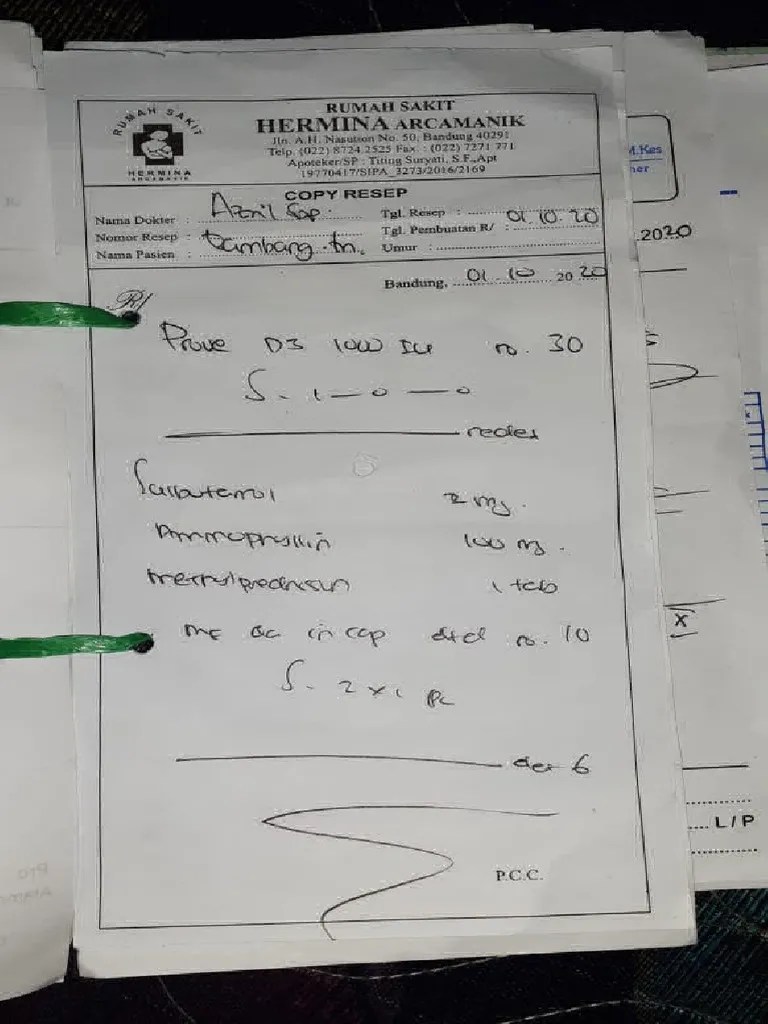 RUMAH SAKIT
HERMINA
ARCAMANIK
RUMAH SAKIT
HERMINA ARCAMANIK
Jln. A.H. Nasution No. 50, Bandung 40291
Telp. (022) 8724 2525 Fax. : (022) 7271 771
Apoteker/SP : Titing Suryati, S.F.,Apt
19770417/SIPA_3273/2016/2169
COPY RESEP
Nama Dokter : Azril Sp.
Tgl. Resep : 01.10.20
Nomor Resep :
Tgl. Pembuatan R/ :
Nama Pasien : Bambang. tn.
Umur :
Bandung, 01.10 20 20
R/
Prove D3 1000 IU no. 30
S. 1 — 0 — 0
Salbutamol 2 mg.
Aminophyllin 100 mg.
Methylprednisolon 1 tab
mf da in cap dtd no. 10
S. 2 x 1 pc
det 6
P.C.C.
M.Kes
her
2020
X
L/P